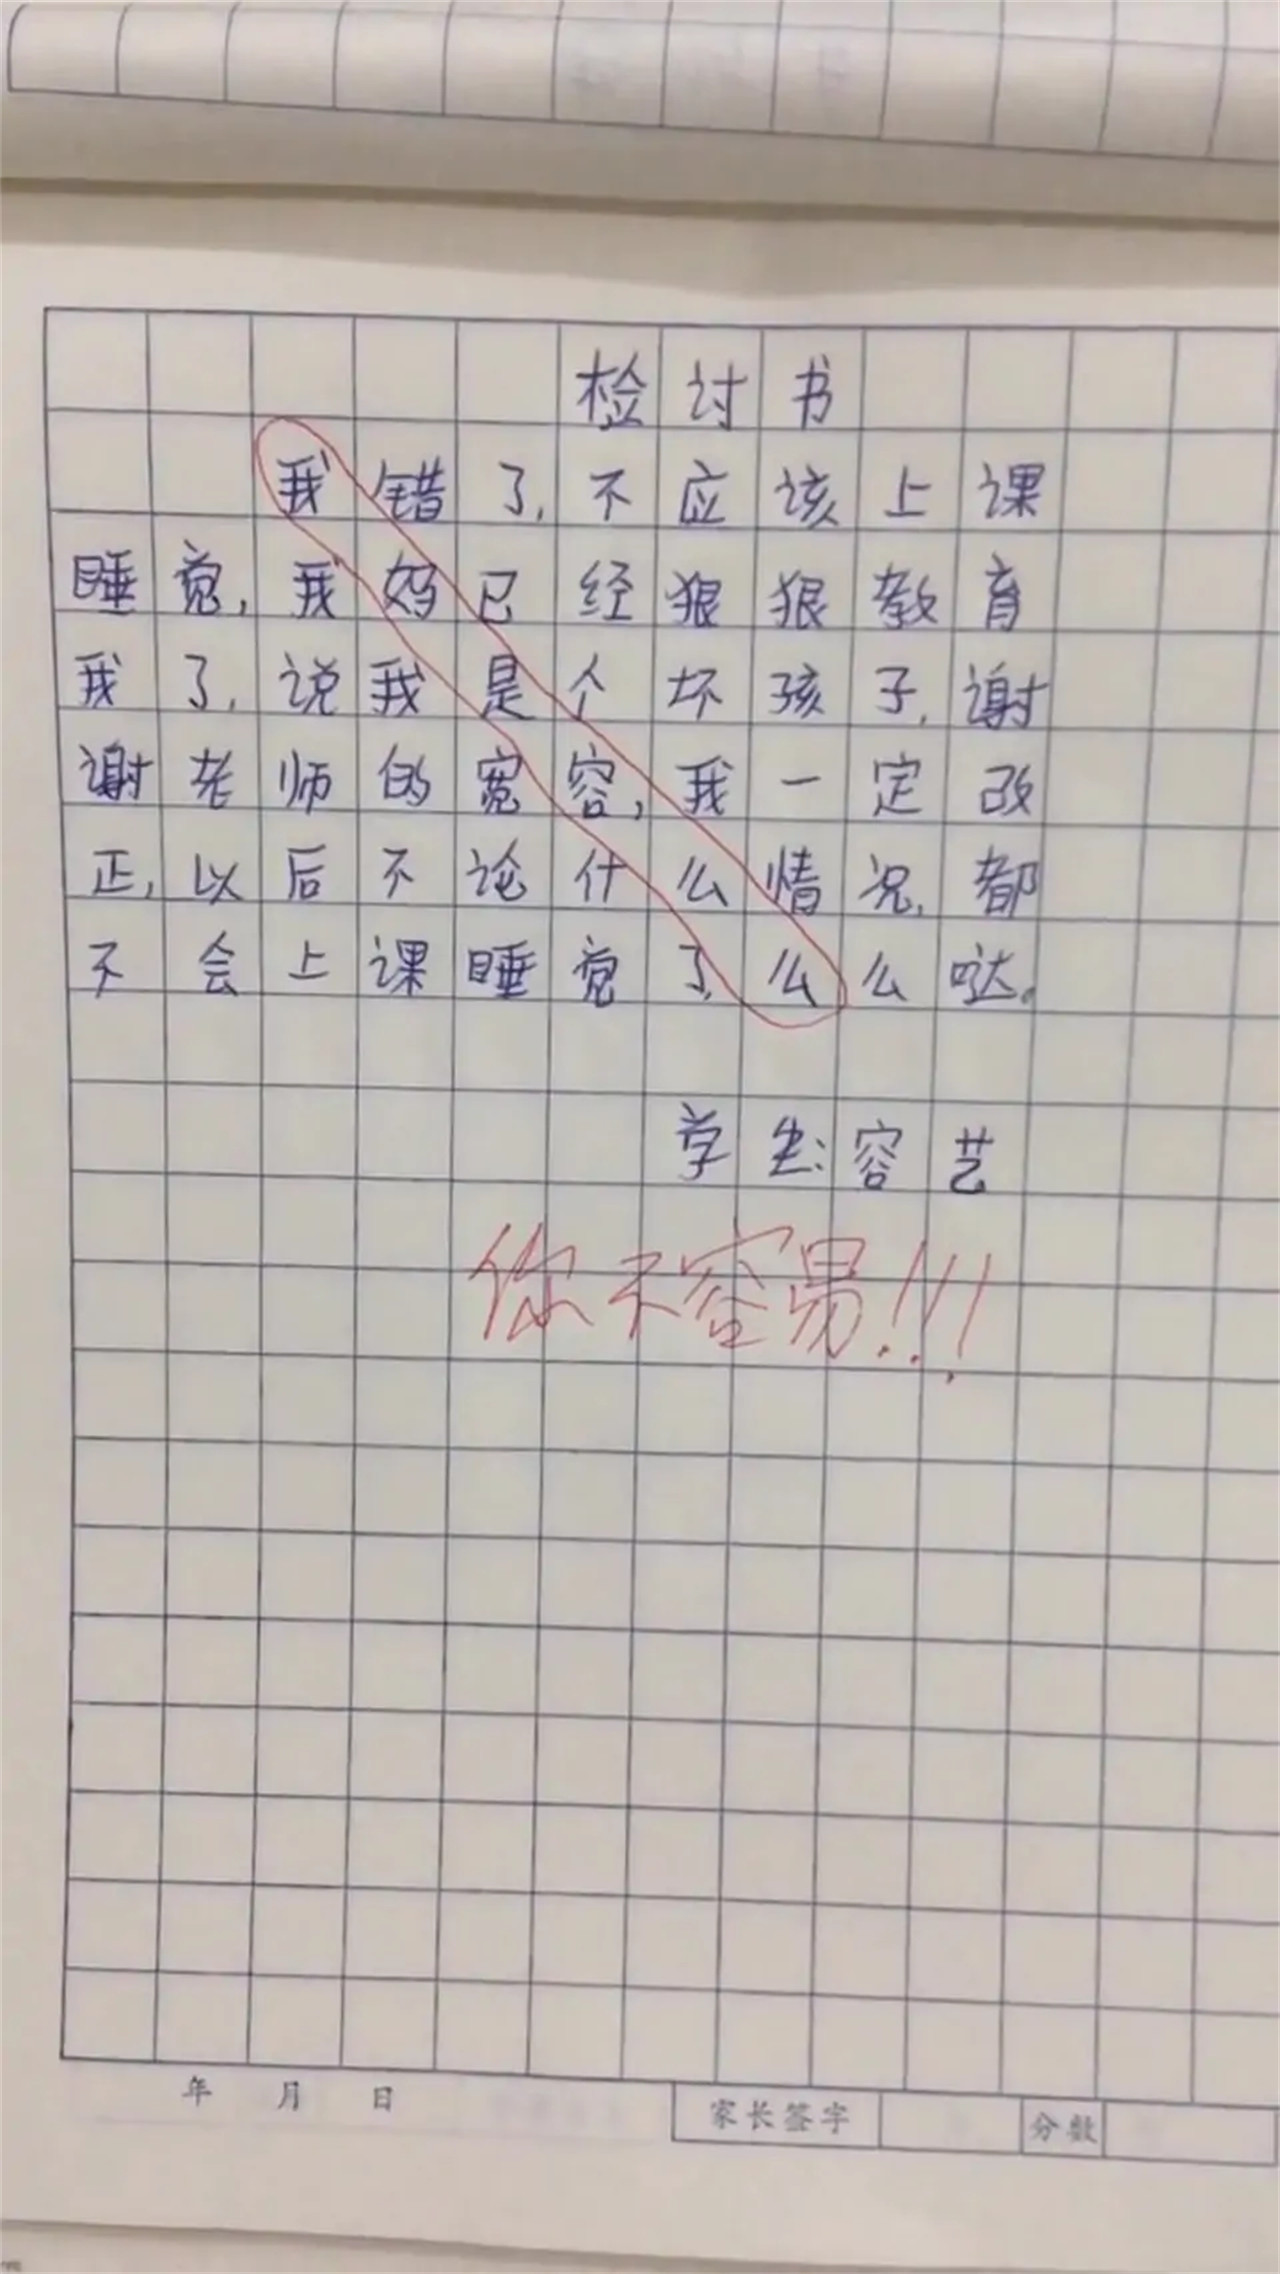 检讨书
我错了,不应该上课
睡觉,我妈已经狠狠教育
我了,说我是个坏孩子,谢
谢老师的宽容,我一定改
正,以后不论什么情况,都
不会上课睡觉了,么么哒。
学生:容艺
你不容易!!!
年 月 日 家长签字 分数